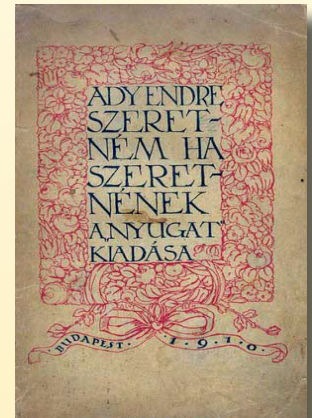 ADY ENDRE
SZERET-
NÉM HA
SZERET-
NÉNEK
A „NYUGAT”
KIADÁSA
BUDAPEST · 1·9·1·0·